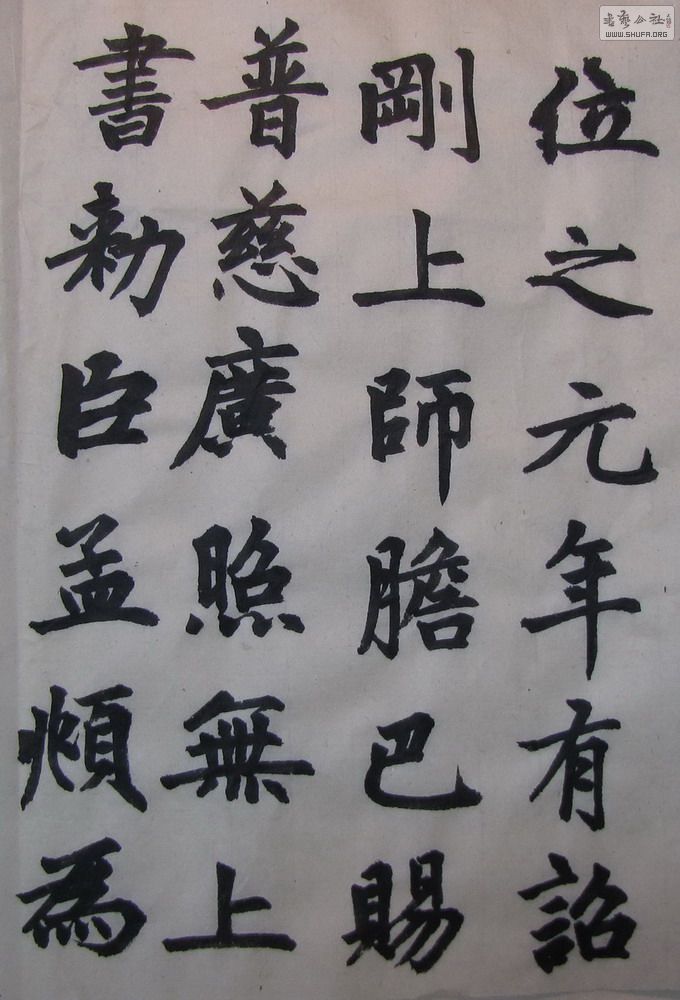 位之元年有詔
剛上師膽巴賜
普慈廣照無上
書勑臣孟頫為
書藝公社
WWW.SHUFA.ORG